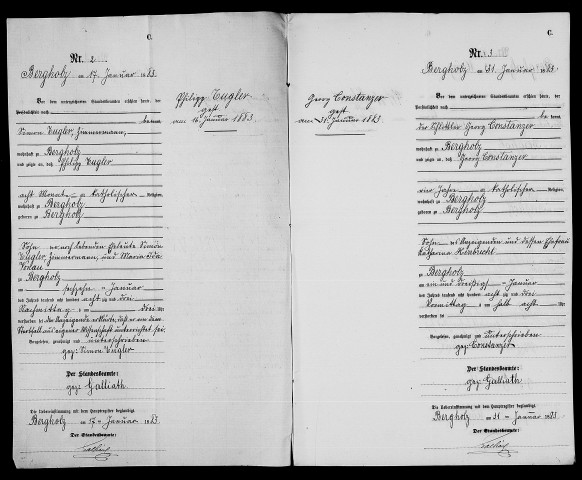 C.
Nr. 2.
Bergholz am 17. Januar 1883.
Vor dem unterzeichneten Standesbeamten erschien heute, der
Persönlichkeit nach
bekannt,
Simon Vugler, Zimmermann,
wohnhaft zu Bergholz
und zeigte an, daß Philipp Vugler
acht Monate alt, katholischer Religion,
wohnhaft zu Bergholz
geboren zu Bergholz
Sohn der noch lebenden Eheleute Simon
Vugler, Zimmermann, und Maria Ida
zu Bergholz
am sechzehn ten Januar
des Jahres tausend acht hundert achtzig und drei
Nachmittags um drei Uhr
verstorben sei. Der Anzeigende erklärte, daß er von dem
Sterbfall aus eigener Wissenschaft unterrichtet sei.
Vorgelesen, genehmigt und unterschrieben
gez. Simon Vugler
Der Standesbeamte:
gez. Galliath.
Die Uebereinstimmung mit dem Hauptregister beglaubigt.
Bergholz am 17. Januar 1883.
Der Standesbeamte:
Philipp Vugler
gest
am 16 Januar 1883.
Georg Constanzer
gest
am 31 Januar 1883
C.
Nr. 3.
Bergholz am 31. Januar 1883.
Vor dem unterzeichneten Standesbeamten erschien heute, der
Persönlichkeit nach
bekannt,
der Georg Constanzer
wohnhaft zu Bergholz
und zeigte an, daß Georg Constanzer
vier Jahre alt, katholischer Religion,
wohnhaft zu Bergholz
geboren zu Bergholz
Sohn des Anzeigenden und dessen Ehefrau
Katharina
zu Bergholz
am ein und dreißig ten Januar
des Jahres tausend acht hundert achtzig und drei
Vormittags um halb acht Uhr
verstorben sei.
Vorgelesen, genehmigt und unterschrieben
gez. Constanzer
Der Standesbeamte:
gez. Galliath
Die Uebereinstimmung mit dem Hauptregister beglaubigt.
Bergholz am 31. Januar 1883
Der Standesbeamte: